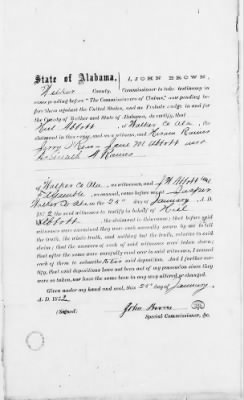 State of Alabama, I, JOHN BROWN,
Walker County. Commissioner to take testimony in
cases pending before "The Commissioners of Claims," now pending be-
fore them against the United States, and as Probate Judge in and for
the County of Walker and State of Alabama, do certify, that
Abbott of Walker Co Ala, the
claimant in this case, and as a witness, and Hiram Raines
Jane M Abbott and
Raines
of Walker Co Ala as witnesses, and J W Abbott
Gamble as counsel, came before me at Jasper
Walker Co Ala on the 25th day of January A. D.
1872, the said witnesses to testify in behalf of
Abbott, the claimant in this case; that before said
witnesses were examined they were each severally sworn by me to tell
the truth, the whole truth, and nothing but the truth, relative to said
claim; that the answers of each of said witnesses were taken down;
that after the same were carefully read over to said witnesses, I caused
each of them to subscribe said deposition. And I further cer-
tify, that said depositions have not been out of my possession since they
were so taken, nor have the same been in any way altered or changed.
Given under my hand and seal, this 25th day of January,
A. D. 1872
(Signed) John Brown
Special Commissioner, &c.